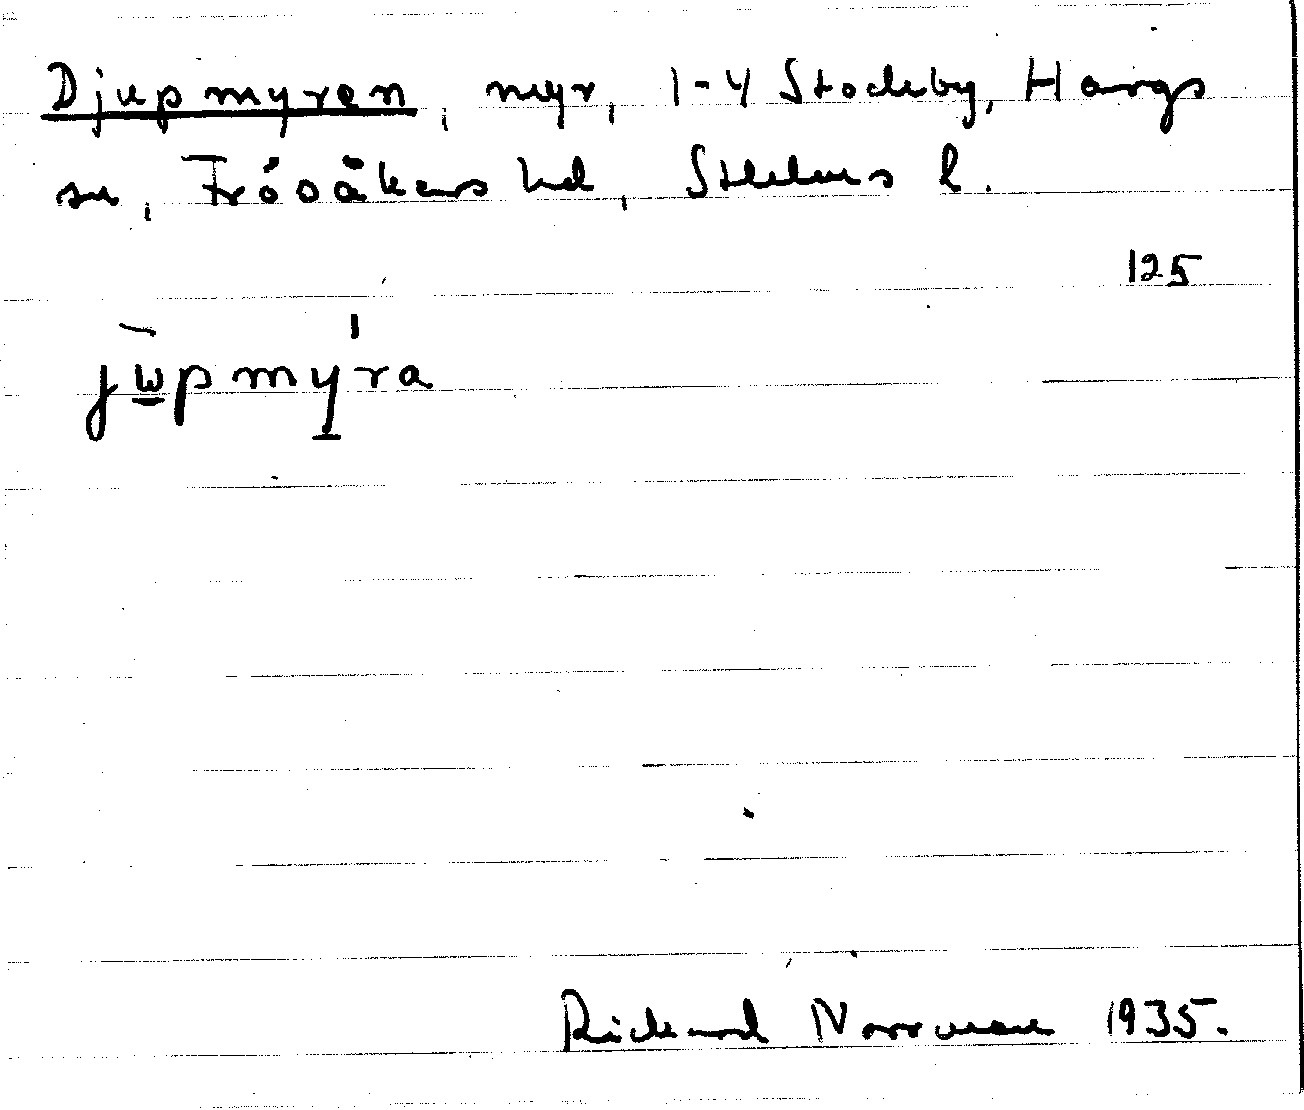 Djupmyren, myr, 1-4 Stockby, Hargs
sn, Frösåkers hd, Sthlms l.
125
jwpmyra
Rickard Norrman 1935.